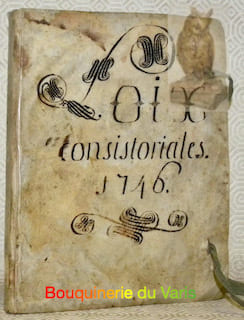 Loix
consistoriales.
1746.
Bouquinerie du Varis